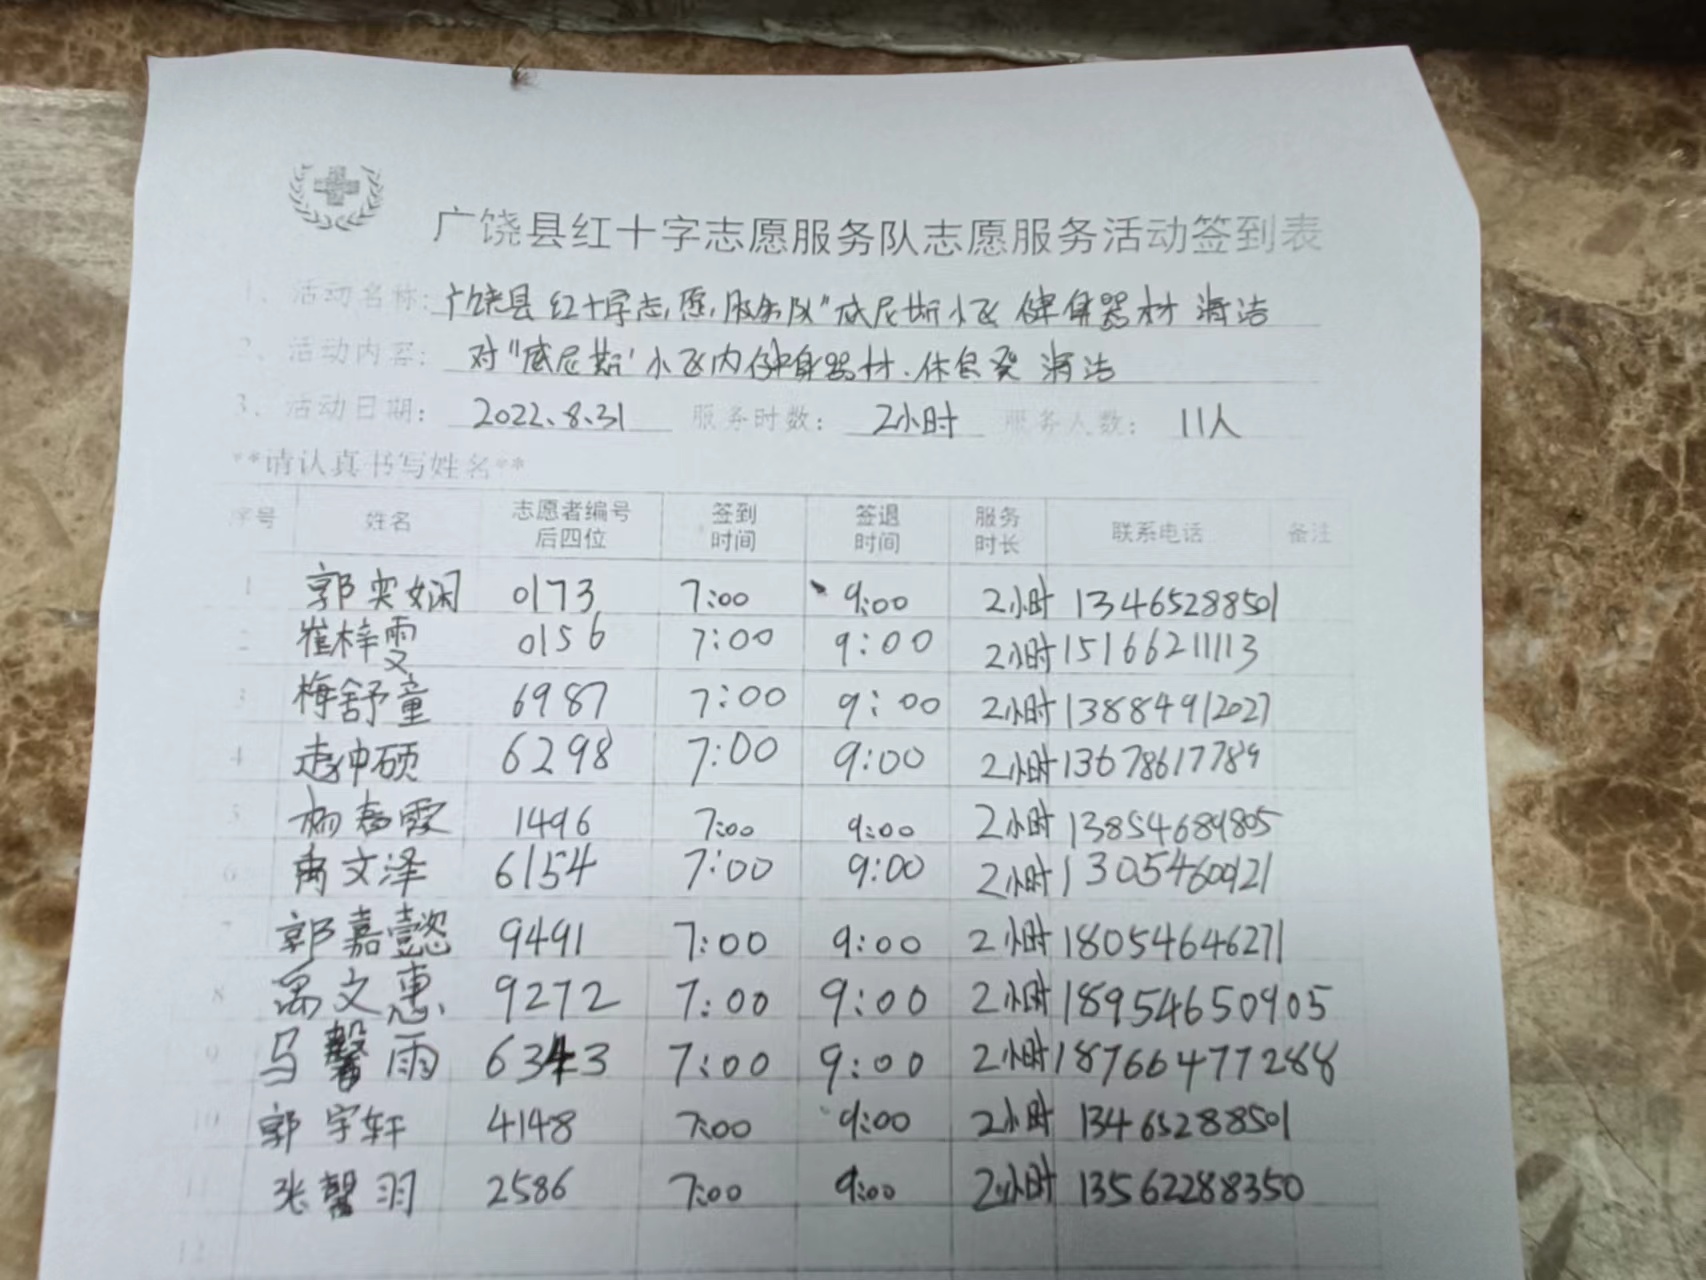 广饶县红十字志愿服务队志愿服务活动签到表
1、活动名称:广饶县红十字志愿服务队"威尼斯小区健身器材清洁
2、活动内容:对"威尼斯"小区内健身器材、休息凳清洁
3、活动日期:2022.8.31 服务时数:2小时 服务人数:11人
**请认真书写姓名**
序号 姓名 志愿者编号后四位 签到时间 签退时间 服务时长 联系电话 备注
1 郭奕娴 0173 7:00 9:00 2小时 13465288501
2 崔梓雯 0156 7:00 9:00 2小时 15166211113
3 梅舒童 6987 7:00 9:00 2小时 13884912027
4 赵帅硕 6298 7:00 9:00 2小时 13678617789
5 杨春霞 1496 7:00 9:00 2小时 13854689805
6 禹文泽 6154 7:00 9:00 2小时 13054600921
7 郭嘉懿 9491 7:00 9:00 2小时 18054646271
8 禹文惠 9272 7:00 9:00 2小时 18954650905
9 马馨雨 6343 7:00 9:00 2小时 18766477288
10 郭宇轩 4148 7:00 9:00 2小时 13465288501
11 张馨羽 2586 7:00 9:00 2小时 13562288350
12